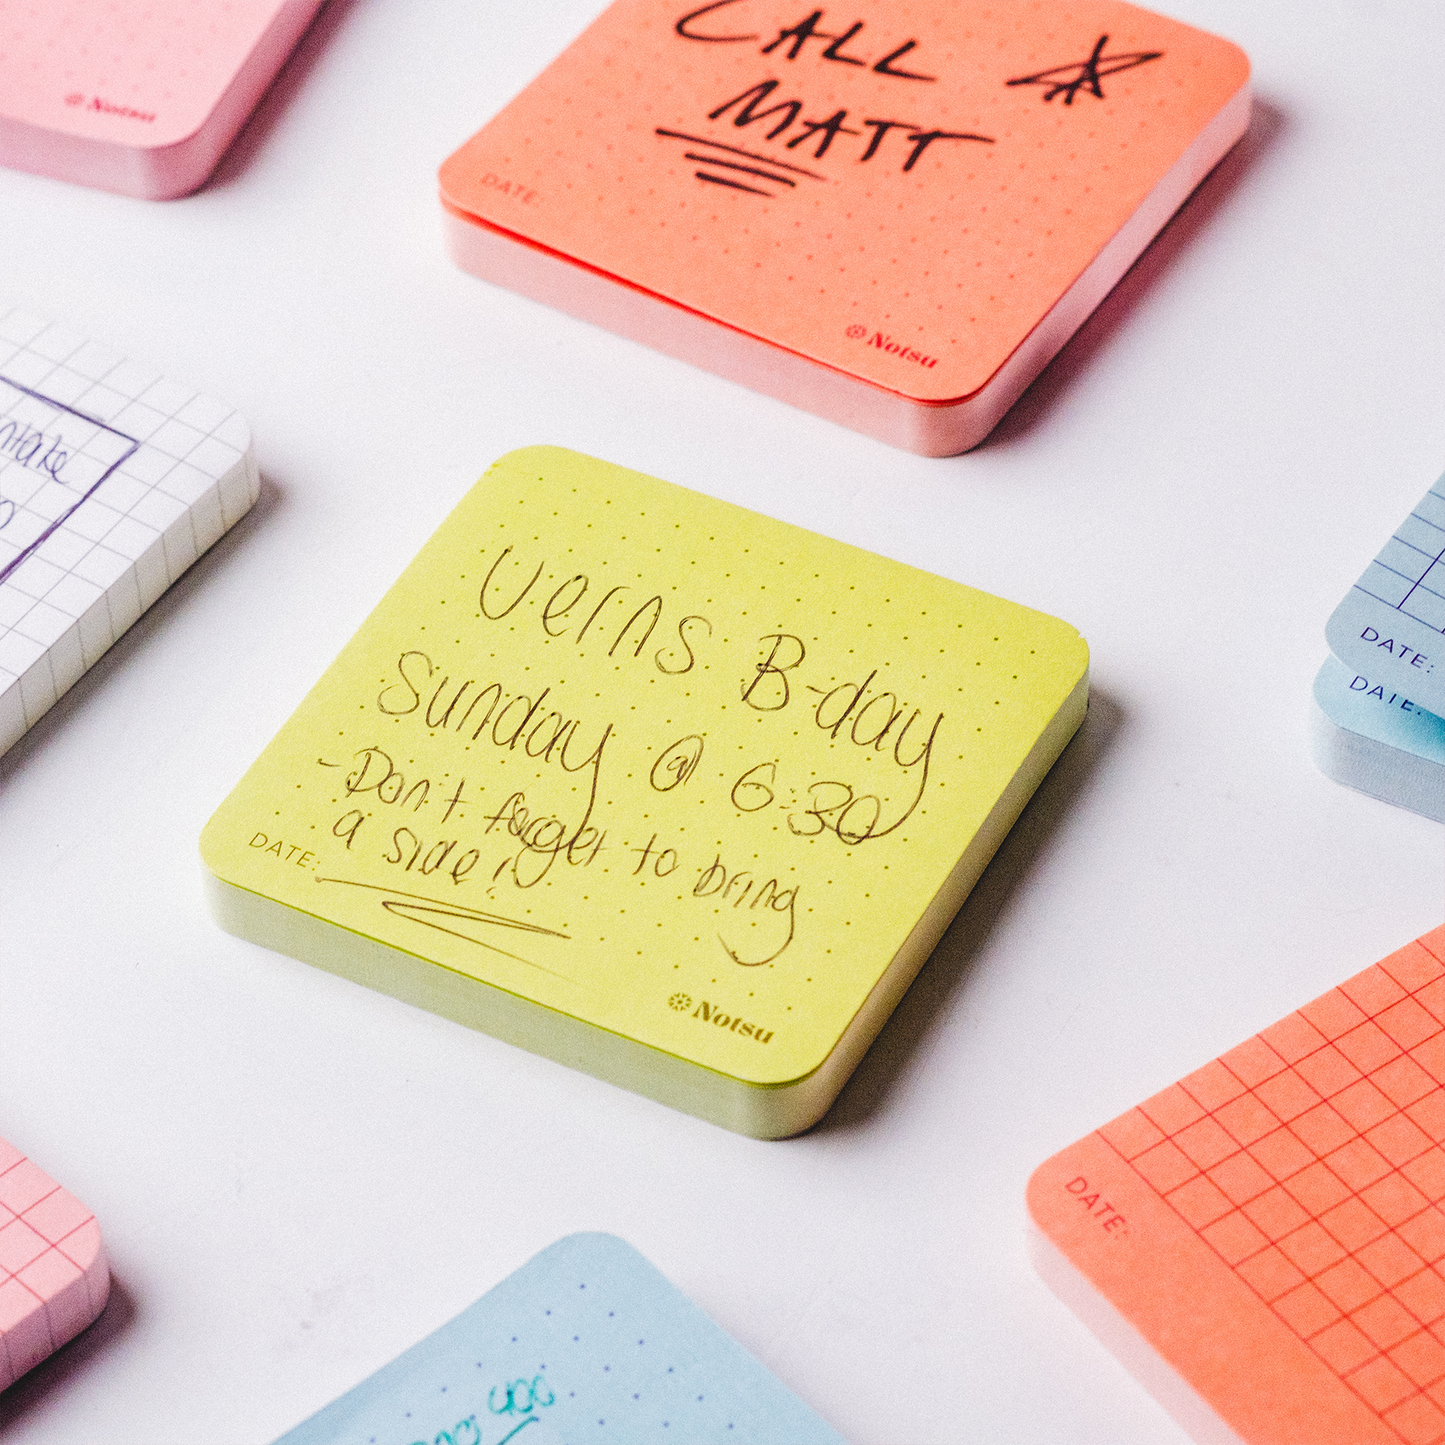 Notsu
CALL
MATT
DATE:
Notsu
ntake
Verns B-day
Sunday @ 6:30
- Don't forget to bring
a side!
DATE:
Notsu
DATE:
DATE:
DATE:
400